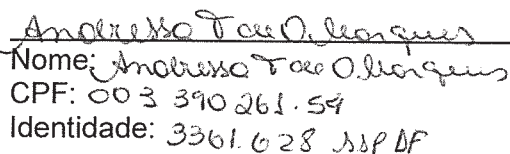 Andressa T de O. Marques
Nome: Andressa T de O Marques
CPF: 003 390 261.59
Identidade: 3361.628 SSP DF